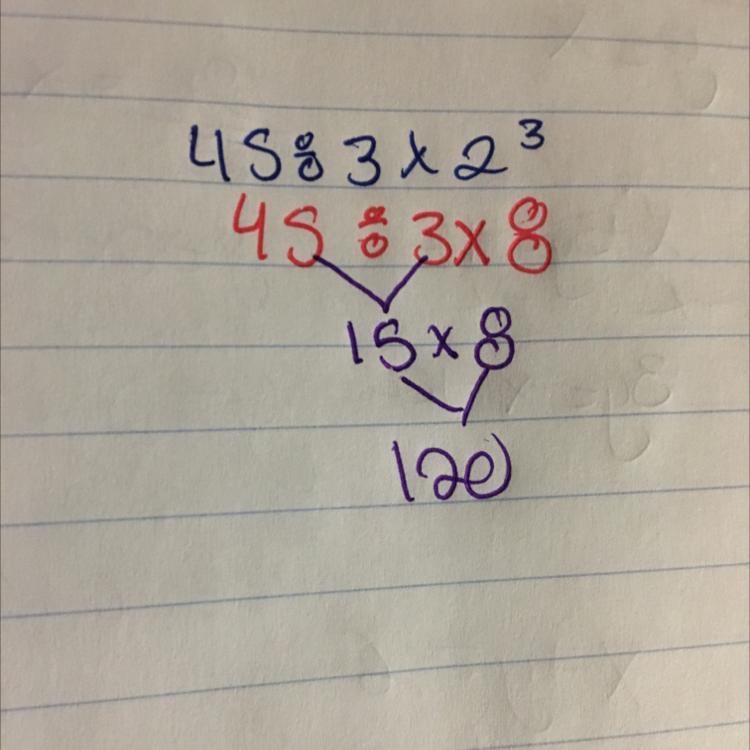 45 ÷ 3 x 2³
45 ÷ 3 x 8
15 x 8
120